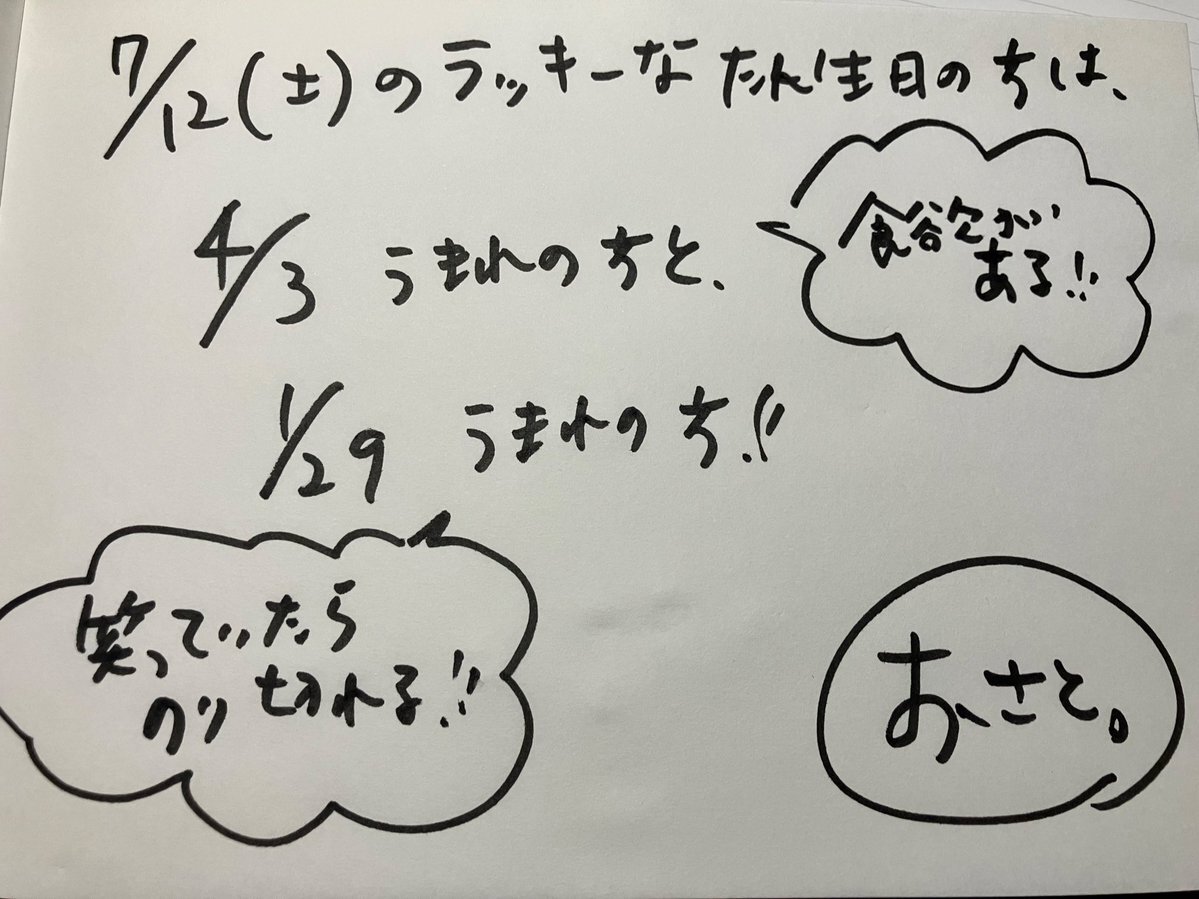 7/12(土)のラッキーなたん生日の方は、
4/3 うまれの方と、
食欲が
ある!!
1/29 うまれの方!!
笑っていたら
のり切れる!!
おさと。